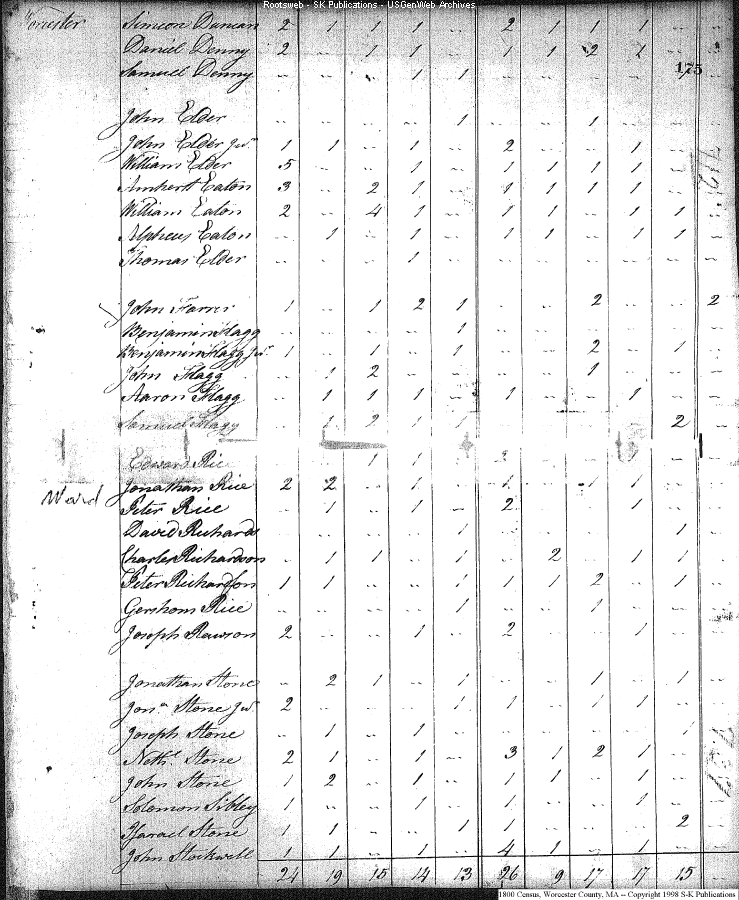 Rootsweb - SK Publications - USGenWeb Archives
Simeon Duncan 2 1 1 1 .. 2 1 1 1 .. ..
Daniel Denny 2 .. 1 1 .. 1 1 2 1 .. ..
Samuel Denny .. .. .. 1 1 .. .. .. .. .. ..
175
John Elder .. .. .. .. 1 .. .. 1 .. .. ..
John Elder Jur. 1 1 .. 1 .. 2 .. .. 1 .. ..
William Elder 5 .. .. 1 .. 1 1 1 1 .. ..
Amherst Eaton 3 .. 2 1 .. 1 1 1 1 .. ..
William Eaton 2 .. 4 1 .. 1 1 .. 1 1 ..
Alpheus Eaton .. 1 .. 1 .. 1 1 .. 1 1 ..
Thomas Elder .. .. .. 1 .. .. .. .. .. .. ..
John Farrer 1 .. 1 2 1 .. .. 2 .. .. 2
Benjamin Flagg .. .. .. .. 1 .. .. .. .. .. ..
Benjamin Flagg Jur. 1 .. 1 .. 1 .. .. 2 .. 1 ..
John Flagg .. 1 2 .. .. .. .. 1 .. .. ..
Aaron Flagg .. 1 1 1 .. 1 .. .. 1 .. ..
Samuel Flagg .. 1 2 1 1 .. .. .. .. 2 ..
Edward Rice .. .. 1 1 .. .. .. .. .. ..
Ward
Jonathan Rice 2 2 .. 1 .. 1 .. 1 1 .. ..
Peter Rice .. 1 .. 1 .. 2 .. .. 1 .. ..
David Richards .. .. .. .. 1 .. .. .. .. 1 ..
Charles Richardson .. 1 1 .. 1 .. 2 .. 1 1 ..
Peter Richardson 1 1 .. .. 1 1 1 2 .. 1 ..
Gershom Rice .. .. .. .. 1 .. .. 1 .. .. ..
Joseph Rawson 2 .. .. 1 .. 2 .. .. 1 .. ..
Jonathan Stone .. 2 1 .. 1 .. .. 1 .. 1 ..
Jona. Stone Jur. 2 .. .. .. 1 1 .. 1 1 .. ..
Joseph Stone .. 1 .. 1 .. .. .. .. .. 1 ..
Nathl. Stone 2 1 .. 1 .. 3 1 2 1 .. ..
John Stone 1 2 .. 1 .. 1 1 .. 1 .. ..
Solomon Sibley 1 .. .. 1 .. 1 .. .. 1 .. ..
Israel Stone 1 1 .. .. 1 1 .. .. .. 2 ..
John Stockwell 1 1 .. 1 .. 4 1 .. 1 .. ..
24 19 15 14 13 26 9 17 17 15
1800 Census, Worcester County, MA -- Copyright 1998 S-K Publications